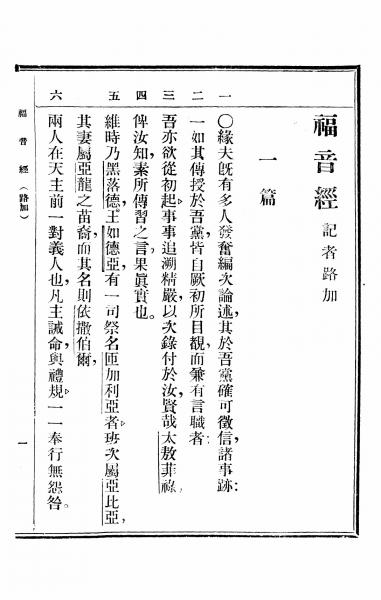 福音經 記者路加
一篇
一 〇緣夫旣有多人發奮編次論述其於吾黨確可徵信諸事跡
二 一如其傳授於吾黨皆自厥初所目覩而兼有言職者
三 吾亦欲從初起事事追溯精嚴以次錄付於汝賢哉太敖菲祿
四 俾汝知素所傳習之言果眞實也。
五 維時乃黑落德王如德亞有一司祭名匝加利亞者班次屬亞比亞
其妻屬亞龍之苗裔而其名則依撒伯爾
六 兩人在天主前一對義人也凡主誡命與禮規一一奉行無怨咎。
福音經(路加)
一